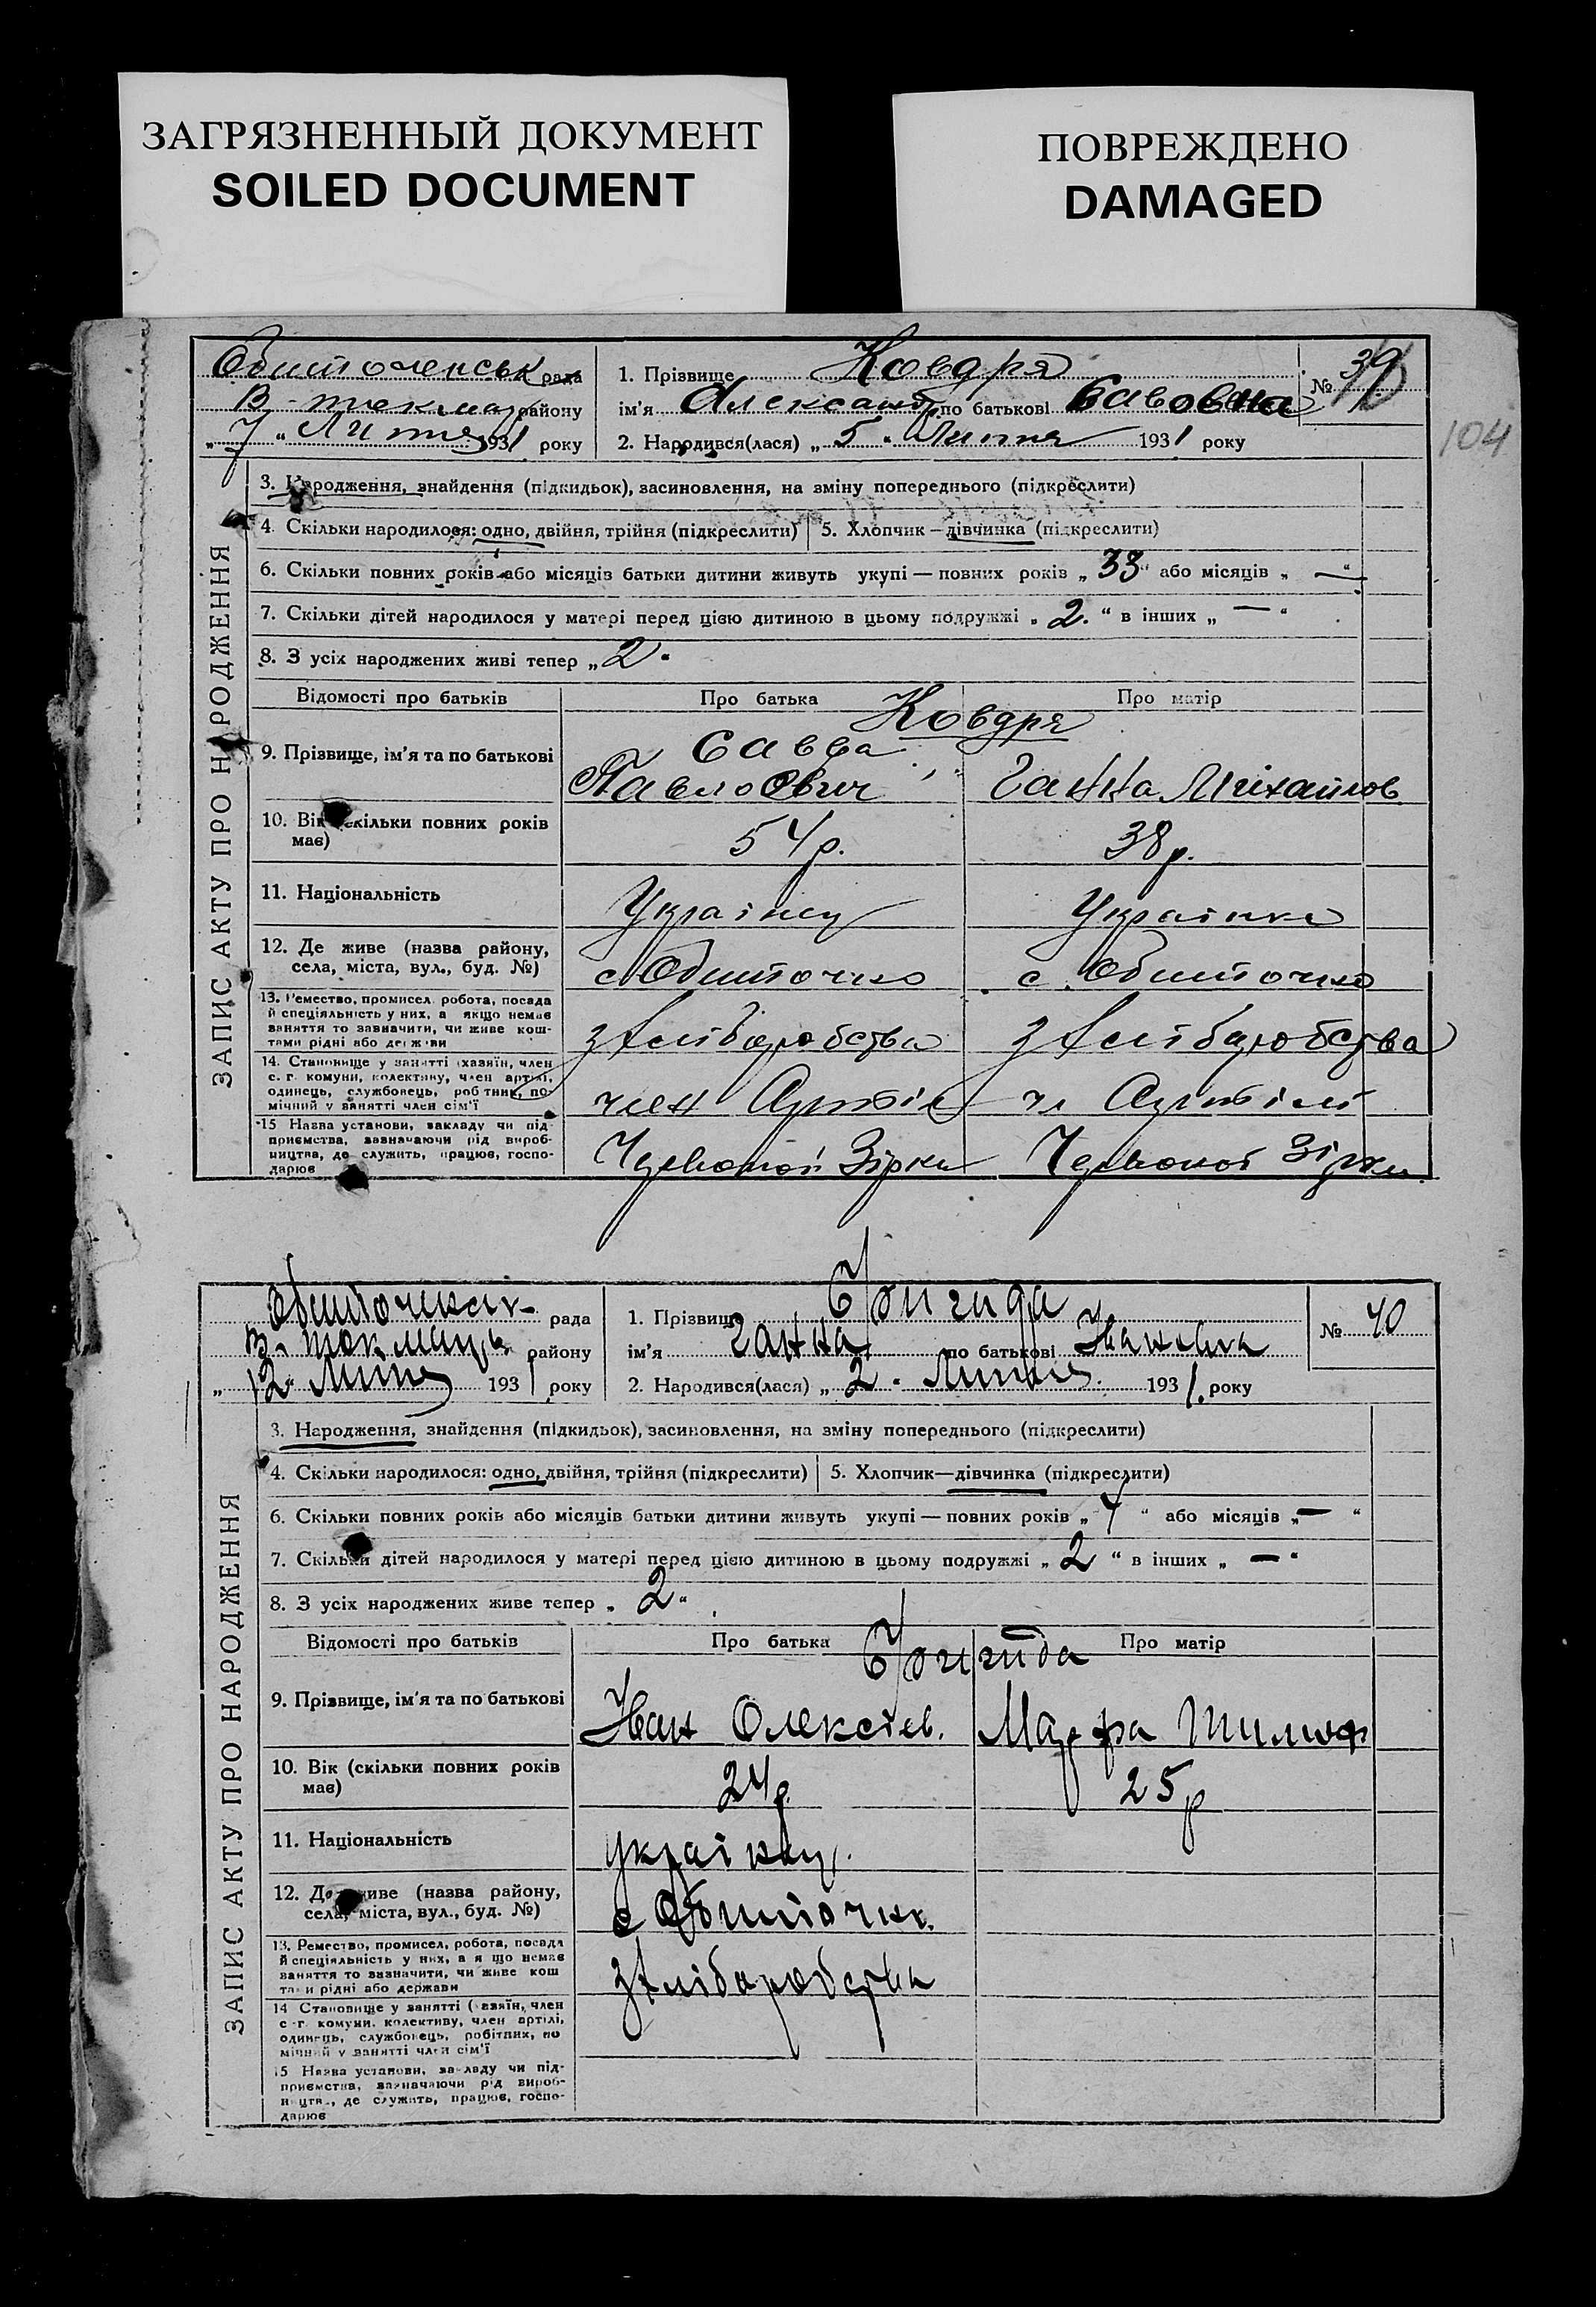 ЗАГРЯЗНЕННЫЙ ДОКУМЕНТ
SOILED DOCUMENT
ПОВРЕЖДЕНО
DAMAGED
104
ЗАПИС АКТУ ПРО НАРОДЖЕННЯ
Обиточенськ рада
В-токмац району
„ 7 " Липня 1931 року
1. Прізвище Ковдря
ім'я Олександ по батькові Савовна
2. Народився(лася) „ 5 " Липня 1931 року
№ 39
3. Народження, знайдення (підкидьок), засиновлення, на зміну попереднього (підкреслити)
4. Скільки народилося: одно, двійня, трійня (підкреслити)
5. Хлопчик – дівчинка (підкреслити)
6. Скільки повних років або місяців батьки дитини живуть укупі — повних років „ 33 " або місяців „ — "
7. Скільки дітей народилося у матері перед цією дитиною в цьому подружжі „ 2. " в інших „ — "
8. З усіх народжених живі тепер „ 2 "
Відомості про батьків
Про батька
Про матір
Ковдря
9. Прізвище, ім'я та по батькові
Савва
Павлович
Ганна Міхайлов
10. Вік (скільки повних років
має)
54р.
38р.
11. Національність
Українец
Українка
12. Де живе (назва району,
села, міста, вул., буд. №)
с Обиточно
с. Обиточно
13. Ремество, промисел, робота, посада
й спеціяльність у них, а якщо немає
заняття то зазначити, чи живе кош-
тами рідні або держави
з хліборобства
з хліборобства
14. Становище у занятті (хазяїн, член
с.-г. комуни, колективу, член артілі,
одинець, службовець, робітник, по-
мічний у занятті член сім'ї
член Артілі
чл Артілі
15 Назва установи, закладу чи під-
приємства, зазначаючи рід вироб-
ництва, де служить, працює, госпо-
дарює
Червоної Зірки
Червоної Зірки
ЗАПИС АКТУ ПРО НАРОДЖЕННЯ
рада
В. токмацьк району
„ 12 " Липня 1931 року
1. Прізвище
ім'я Ганна по батькові Івановна
2. Народився(лася) „ 2 " Липня 1931. року
№ 40
3. Народження, знайдення (підкидьок), засиновлення, на зміну попереднього (підкреслити)
4. Скільки народилося: одно, двійня, трійня (підкреслити)
5. Хлопчик—дівчинка (підкреслити)
6. Скільки повних років або місяців батьки дитини живуть укупі — повних років „ 7 " або місяців „ — "
7. Скільки дітей народилося у матері перед цією дитиною в цьому подружжі „ 2 " в інших „ — "
8. З усіх народжених живе тепер „ 2 "
Відомості про батьків
Про батька
Про матір
9. Прізвище, ім'я та по батькові
Іван Олексієв.
Марфа Тимоф
10. Вік (скільки повних років
має)
24р.
25р
11. Національність
українец.
12. Де живе (назва району,
села, міста, вул., буд. №)
с Обиточн.
13. Ремество, промисел, робота, посада
й спеціяльність у них, а якщо немає
заняття то зазначити, чи живе кош
тами рідні або держави
з хліборобства
14 Становище у занятті (хазяїн, член
с.-г. комуни, колективу, член артілі,
одинець, службовець, робітник, по
мічний у занятті член сім'ї
15 Назва установи, закладу чи під-
приємства, зазначаючи рід вироб-
ництва, де служить, працює, госпо-
дарює